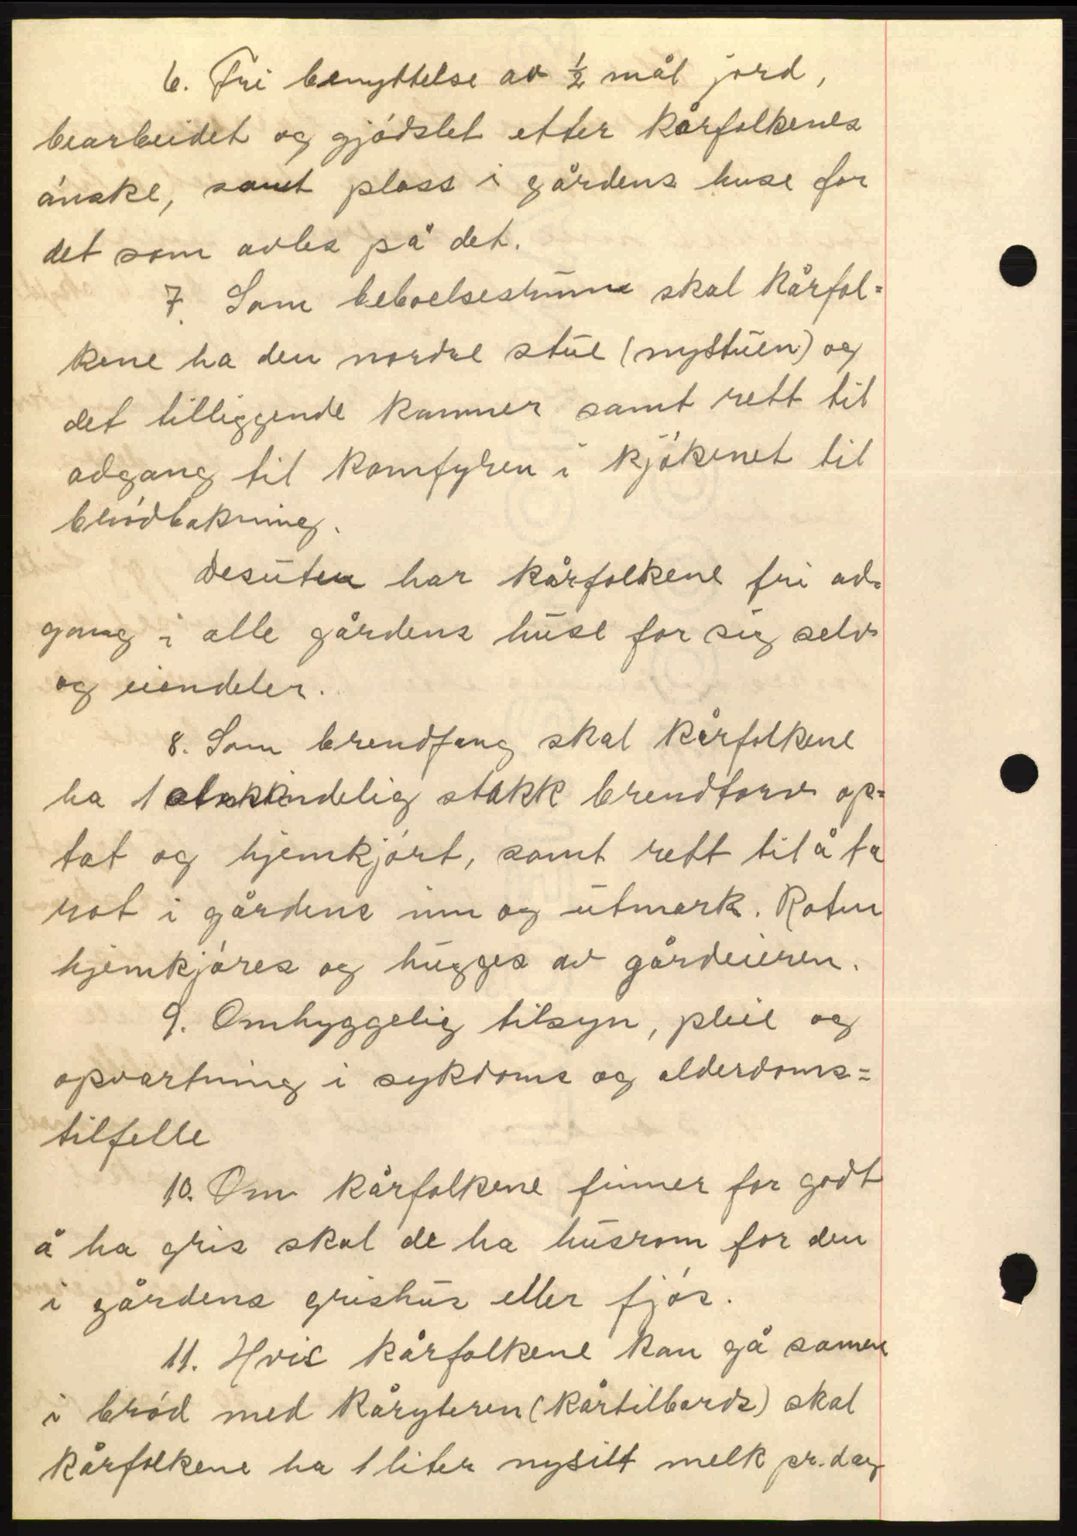 6. Fri benyttelse av ½ mål jord,
bearbeidet og gjødslet etter kårfolkenes
ønske, samt plass i gårdens huse for
det som avles på det.
7. Som beboelsesrum skal kårfol=
kene ha den nordre stue (nystuen) og
det tilliggende kammer samt rett til
adgang til komfyren i kjøkenet til
brødbakning.
Desuten har kårfolkene fri ad=
gang i alle gårdens huse for sig selv
og eiendeler.
8. Som brendfang skal kårfolkene
ha 1 alskindelig stakk brendtorv op=
tat og hjemkjørt, samt rett til å ta
rot i gårdens inn og utmark. Roten
hjemkjøres og hugges av gårdeieren.
9. Omhyggelig tilsyn, pleie og
opvartning i sykdoms og alderdoms=
tilfelle
10. Om kårfolkene finner for godt
å ha gris skal de ha husrom for den
i gårdens grishus eller fjøs.
11. Hvis kårfolkene kan gå samen
i brød med kåryteren (kårtilbords) skal
kårfolkene ha 1 liter nysilt melk pr. dag